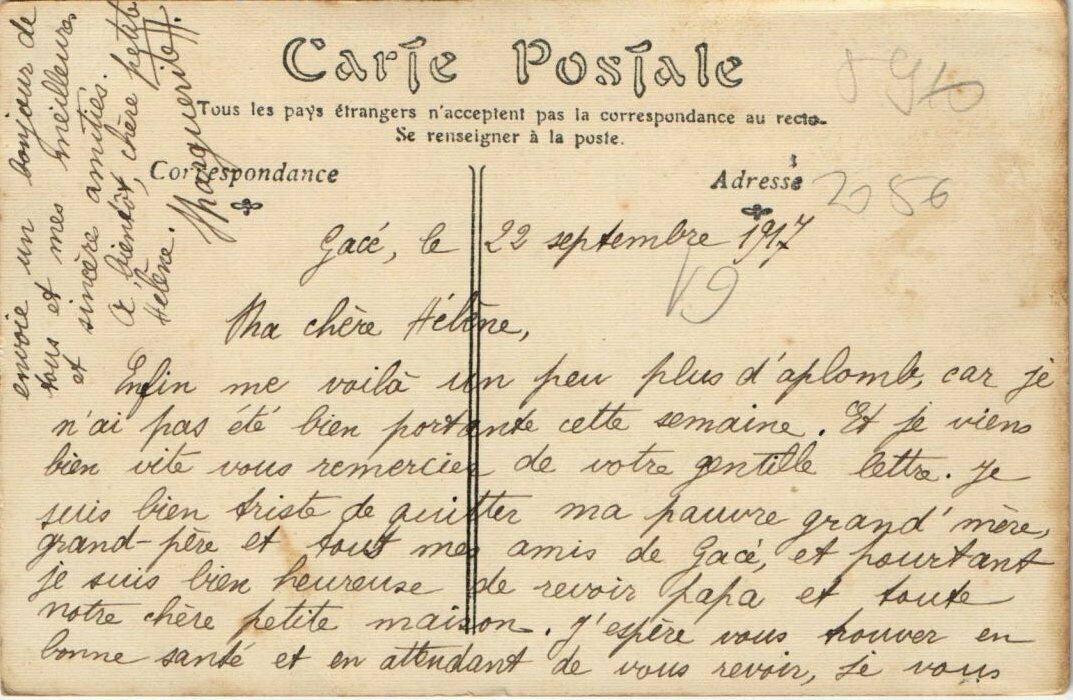 Carte Postale
Tous les pays étrangers n'acceptent pas la correspondance au recto.
Se renseigner à la poste.
Correspondance
Adresse
2086
19
Gacé, le 22 septembre 1917
Ma chère Hélène,
Enfin me voilà un peu plus d'aplomb, car je
n'ai pas été bien portante cette semaine. Et je viens
bien vite vous remercier de votre gentille lettre. Je
suis bien triste de quitter ma pauvre grand'mère,
grand-père et tous mes amis de Gacé, et pourtant
je suis bien heureuse de revoir papa et toute
notre chère petite maison. J'espère vous trouver en
bonne santé et en attendant de vous revoir, je vous
envoie un bonjour de
tous et mes meilleures
et sincère amitiés.
A bientôt, chère petite
Hélène.
Marguerite